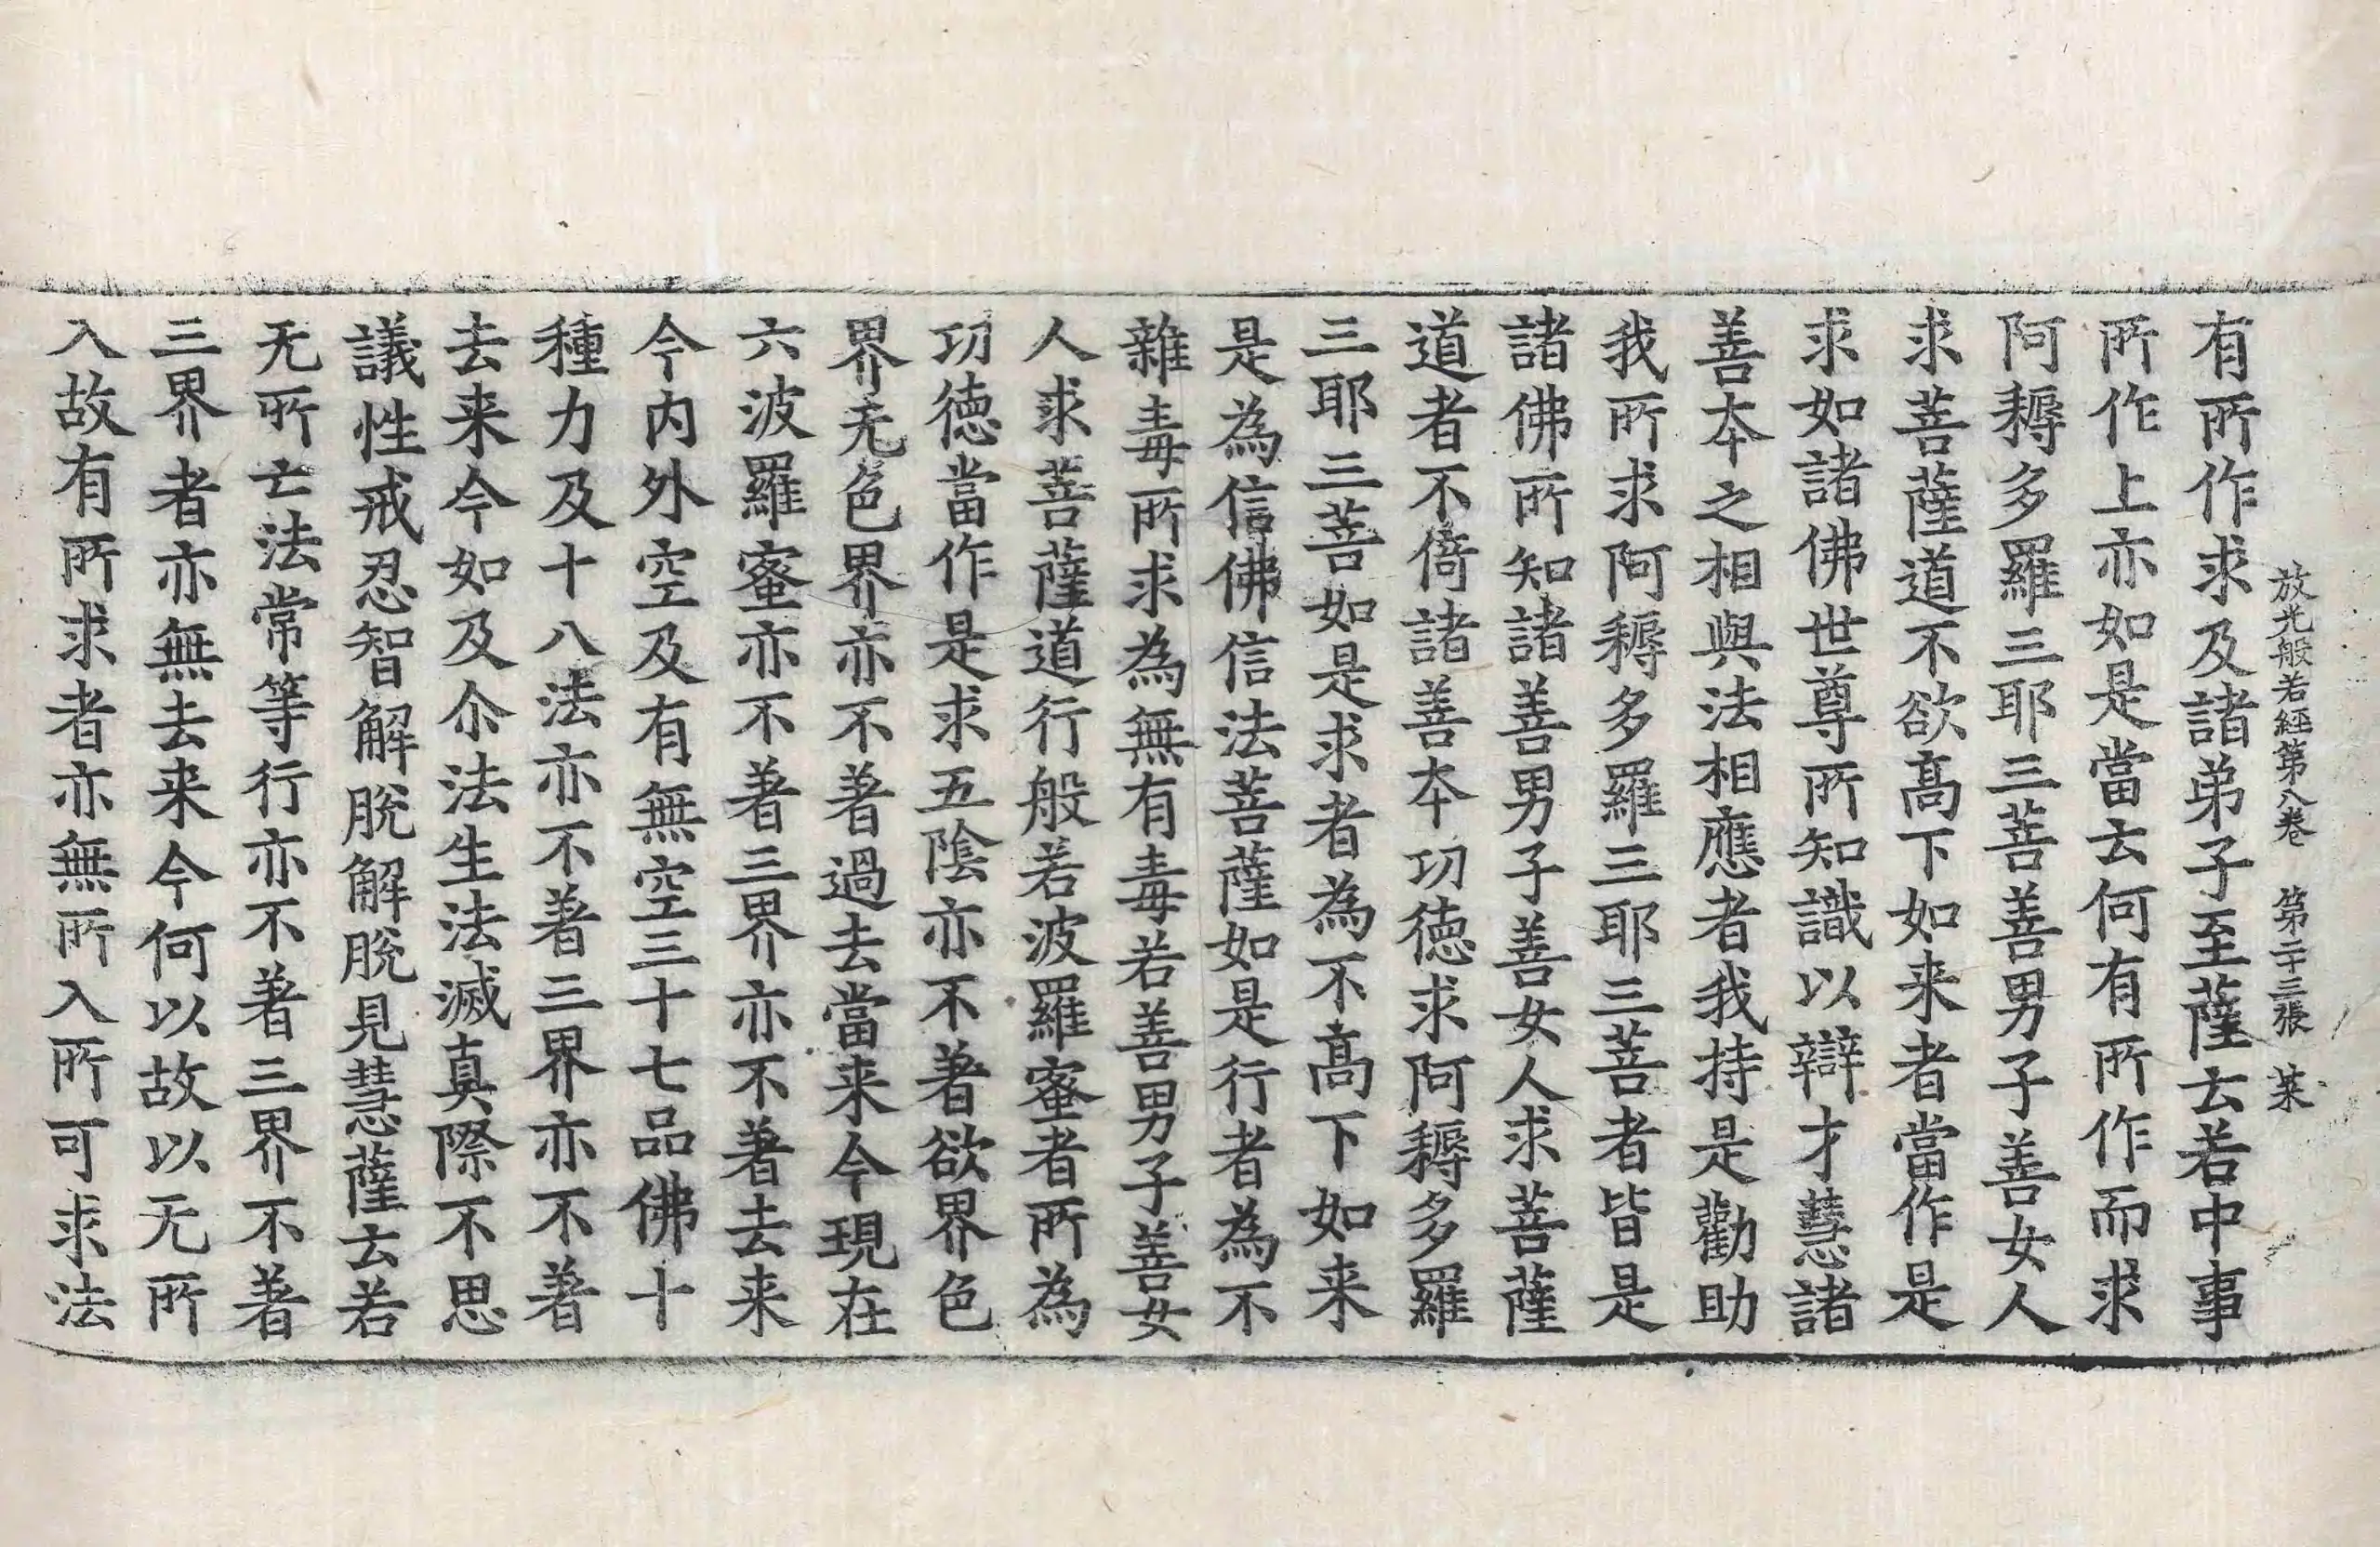 放光般若經第八卷 第二十三張 菜
有所作求及諸弟子至薩云若中事
所作上亦如是當云何有所作而求
阿耨多羅三耶三菩善男子善女人
求菩薩道不欲髙下如来者當作是
求如諸佛世尊所知識以辯才慧諸
善本之相與法相應者我持是勸助
我所求阿耨多羅三耶三菩者皆是
諸佛所知諸善男子善女人求菩薩
道者不倚諸善本功德求阿耨多羅
三耶三菩如是求者為不髙下如来
是為信佛信法菩薩如是行者為不
雜毒所求為無有毒若善男子善女
人求菩薩道行般若波羅蜜者所為
功德當作是求五陰亦不著欲界色
界无色界亦不著過去當来今現在
六波羅蜜亦不著三界亦不著去来
今内外空及有無空三十七品佛十
種力及十八法亦不著三界亦不著
去来今如及尒法生法滅真際不思
議性戒忍智解脫解脫見慧薩云若
无所亡法常等行亦不著三界不著
三界者亦無去来今何以故以无所
入故有所求者亦無所入所可求法